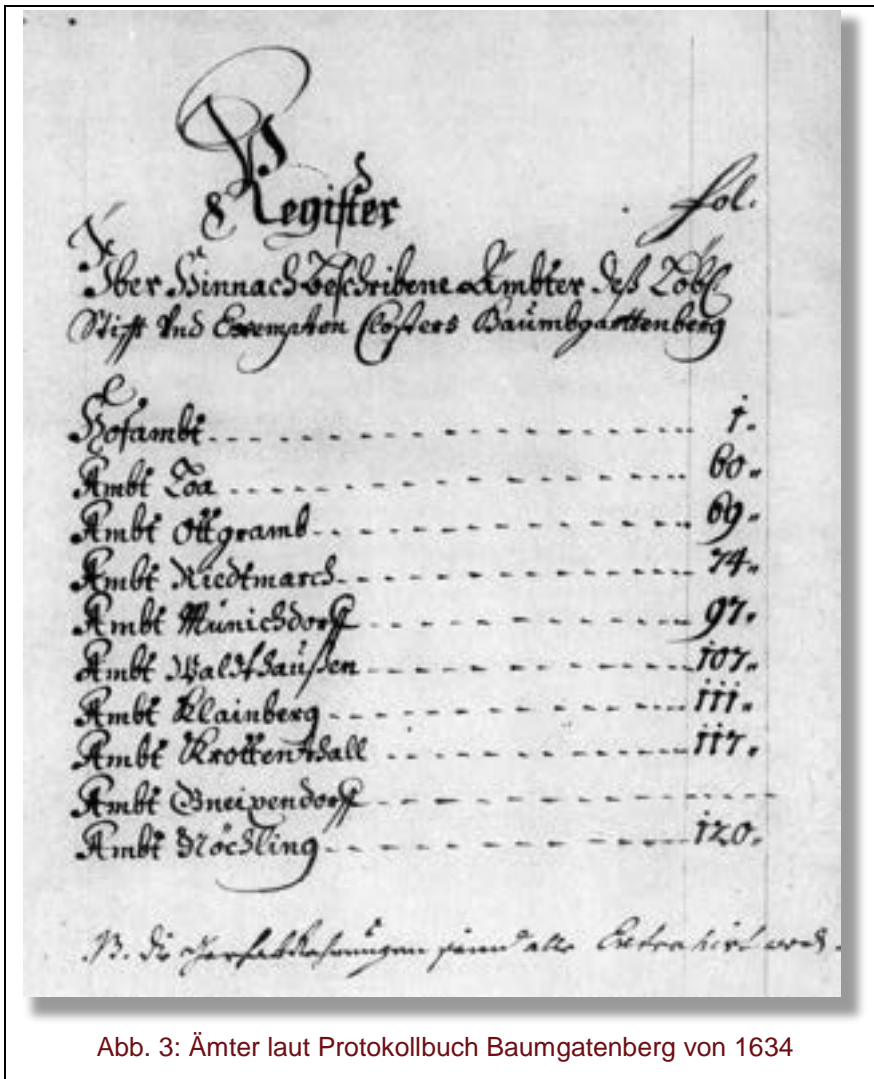 Register fol.
Über Hinnach Beschribene Ämbter deß Löbl
Stifft Vnd Exempten Closters Baumbgarttenberg
Hofambt 1.
Ambt Loa 60.
Ambt Ottgramb 69.
Ambt Riedtmarch 74.
Ambt Münichdorff 97.
Ambt Waldthaußen 107.
Ambt Klainberg 111.
Ambt Krottenthall 117.
Ambt Gneixendorff
Ambt Nöchling 120.
NB. die alle Extrahirt
Abb. 3: Ämter laut Protokollbuch Baumgatenberg von 1634